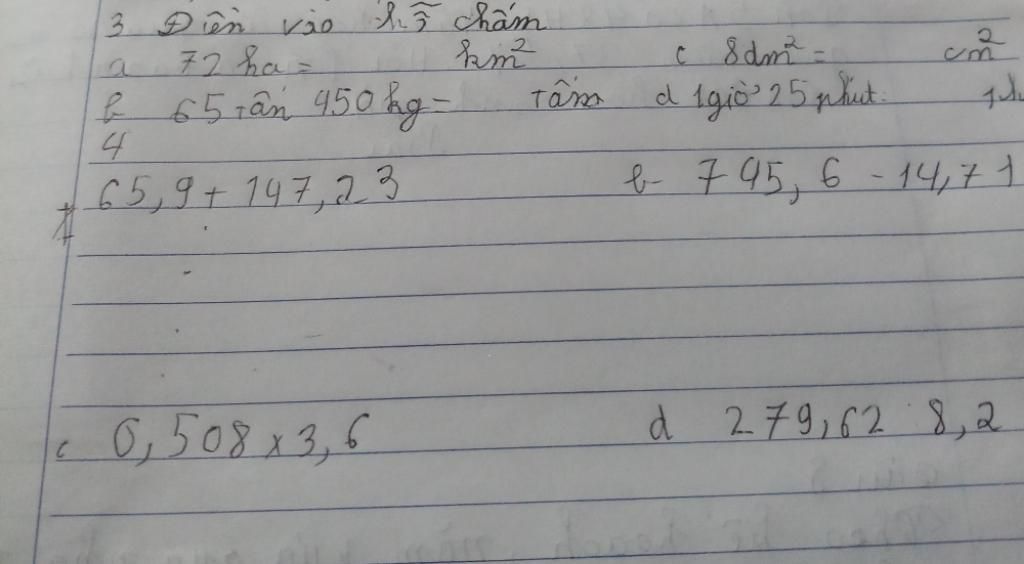 3. Điền vào chỗ chấm
a 72 ha = km² c 8dm² = cm²
b 65 tấn 450 kg = tấn d 1giờ 25 phút
4
65,9 + 147,23 b- 795,6 - 14,71
c 0,508 x 3,6 d 279,62 : 8,2